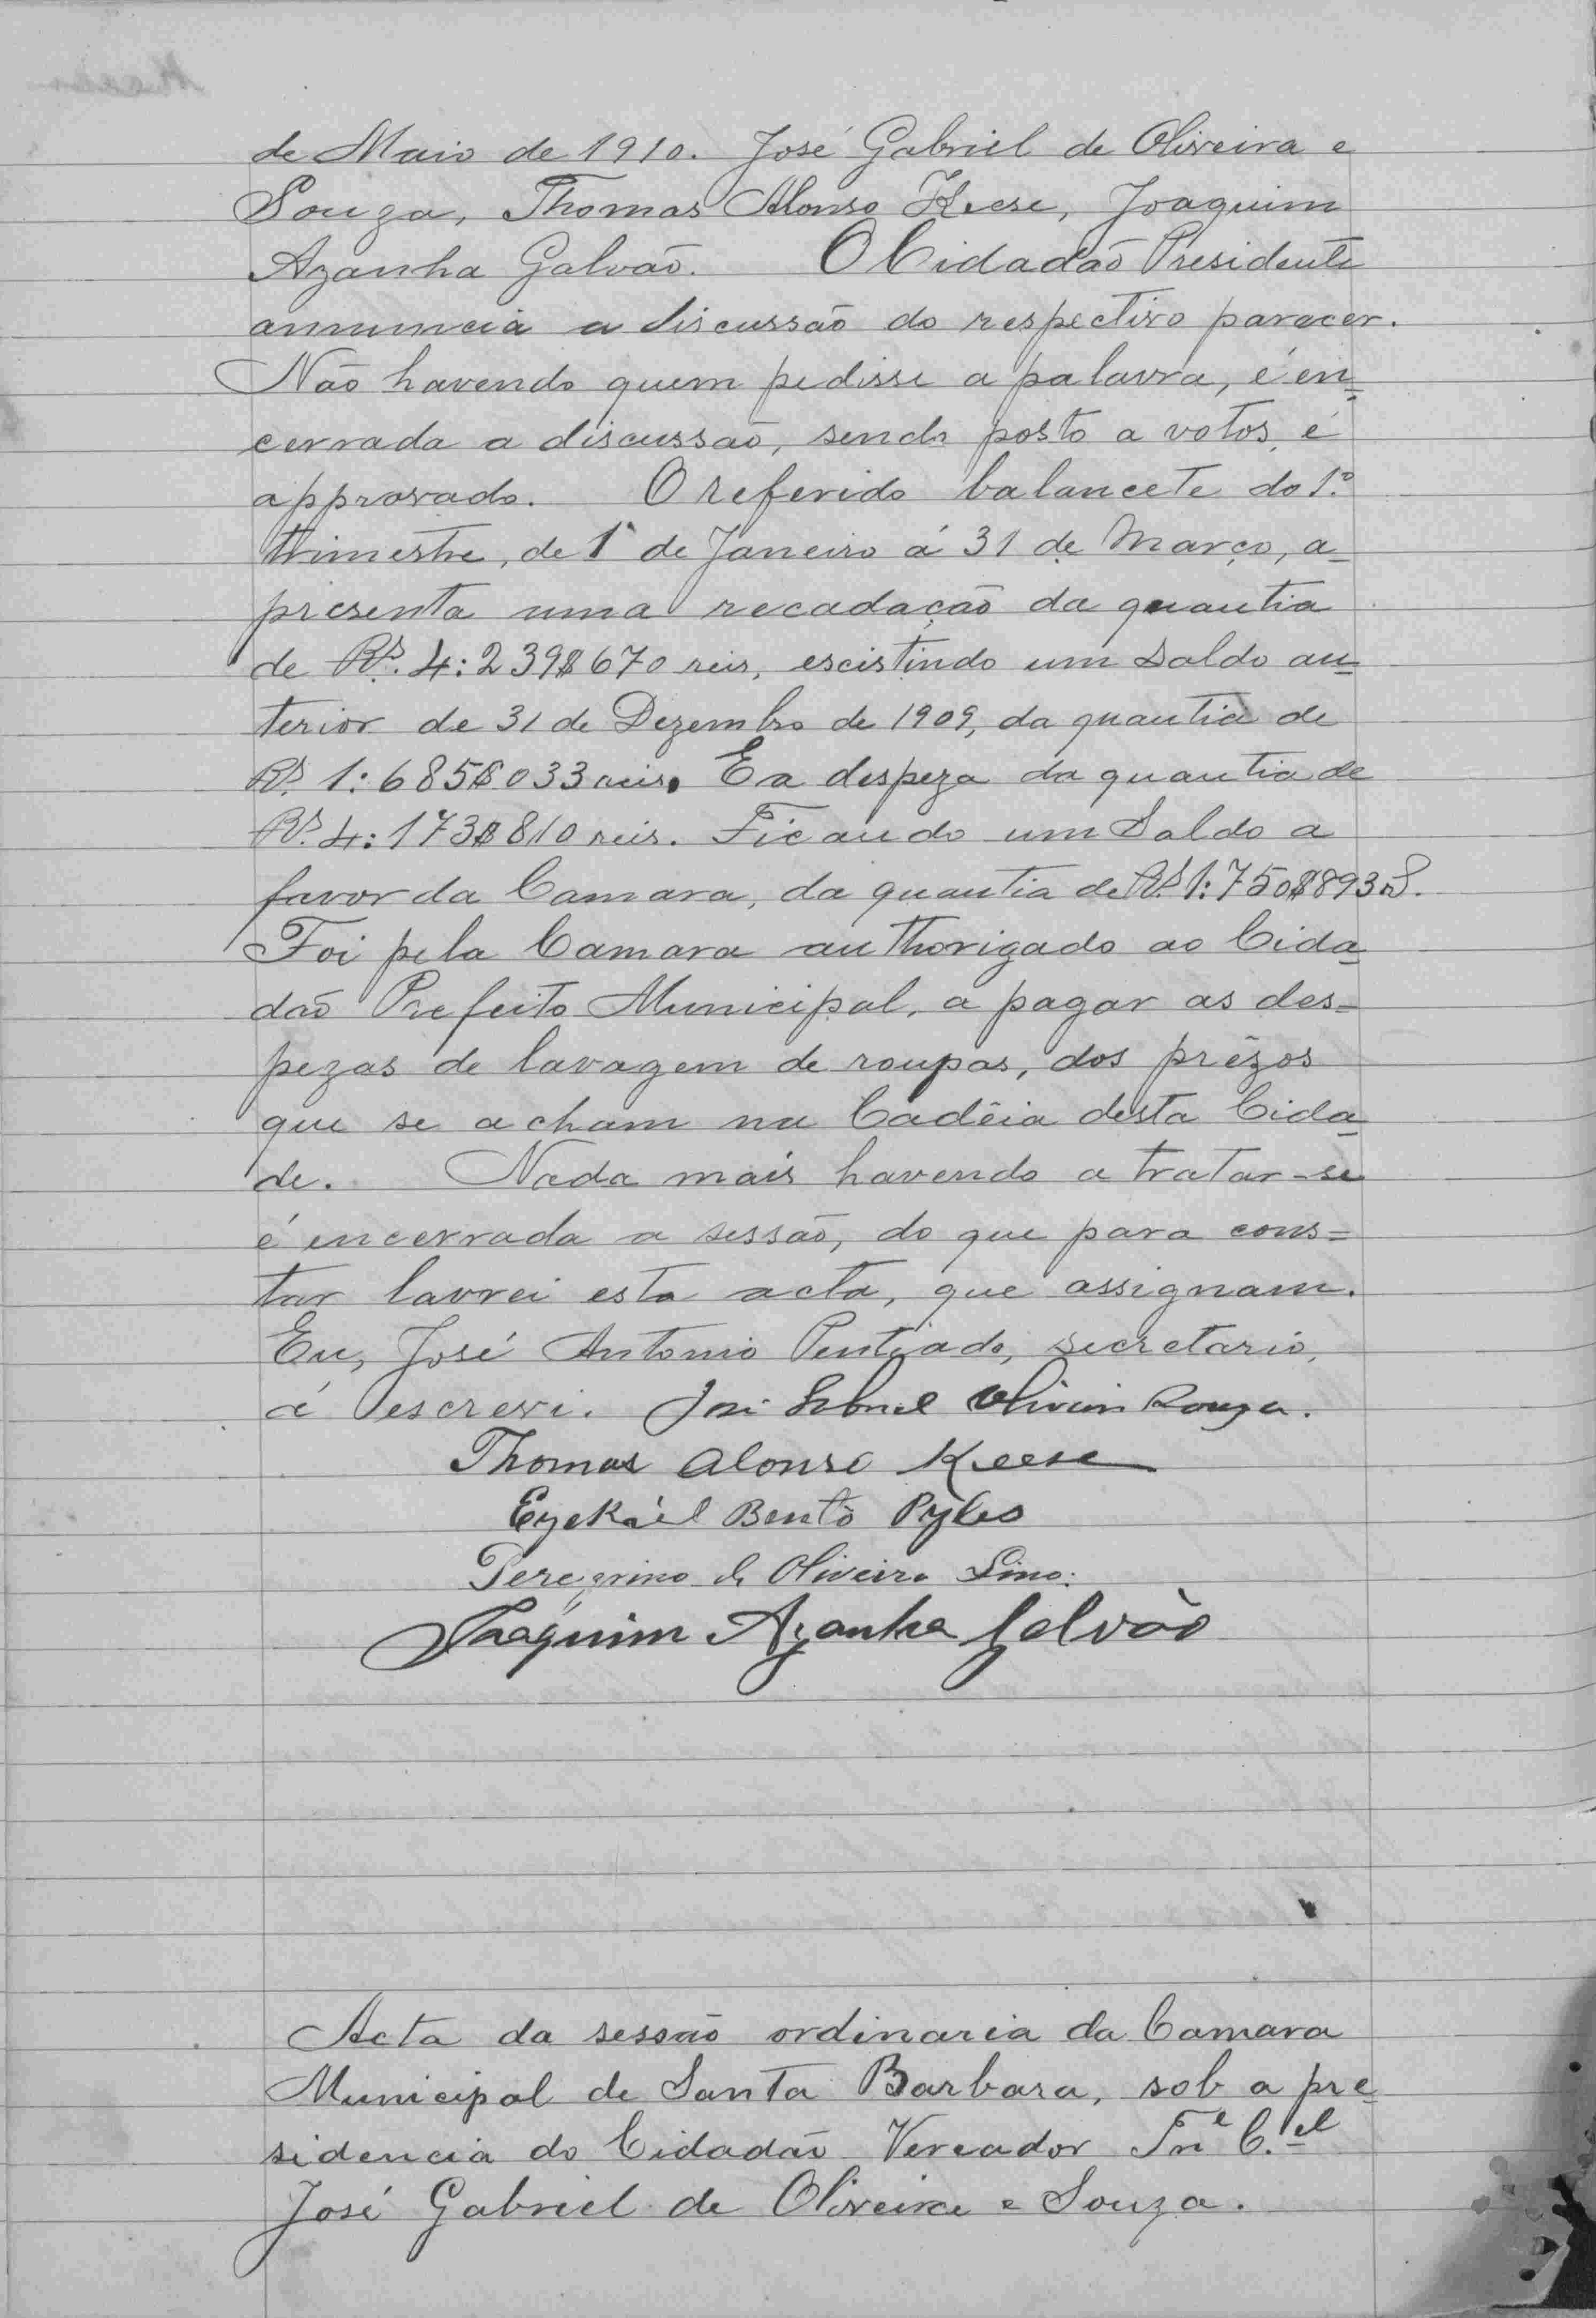 de Maio de 1910. José Gabriel de Oliveira e
Souza, Thomas Alonso Keese, Joaquim
Azanha Galvão. O Cidadão Presidente
annuncia a discussão do respectivo paracer.
Não havendo quem pedisse a palavra, é en=
cerrada a discussão, sendo posto a votos, é
approvado. O referido balancete do 1º
trimestre, de 1º de Janeiro á 31 de Março, a=
presenta uma recadação da quantia
de Rs. 4:239$670 reis, escistindo um Saldo an=
terior de 31 de Dezembro de 1909, da quantia de
Rs. 1:685$033 reis. E a despeza da quantia de
Rs. 4:173$810 reis. Ficando um Saldo a
favor da Camara, da quantia de Rs. 1:750$893 rs.
Foi pela Camara authorizado ao Cida=
dão Prefeito Municipal, a pagar as des=
pezas de lavagem de roupas, dos prêzos
que se acham na Cadêia desta Cida=
de. Nada mais havendo a tratar-se
é encerrada a sessão, do que para cons=
tar lavrei esta acta, que assignam.
Eu, José Antonio Penteado, secretario,
á escrevi. José Gabriel Oliveira Souza.
Thomas Alonso Keese
Ezekiel Bento Pyles
Peregrino de Oliveira Lino.
Joaquim Azanha Galvão
Acta da sessão ordinaria da Camara
Municipal de Santa Barbara, sob a pre=
sidencia do Cidadão Vereador Tne C.el
José Gabriel de Oliveira e Souza.